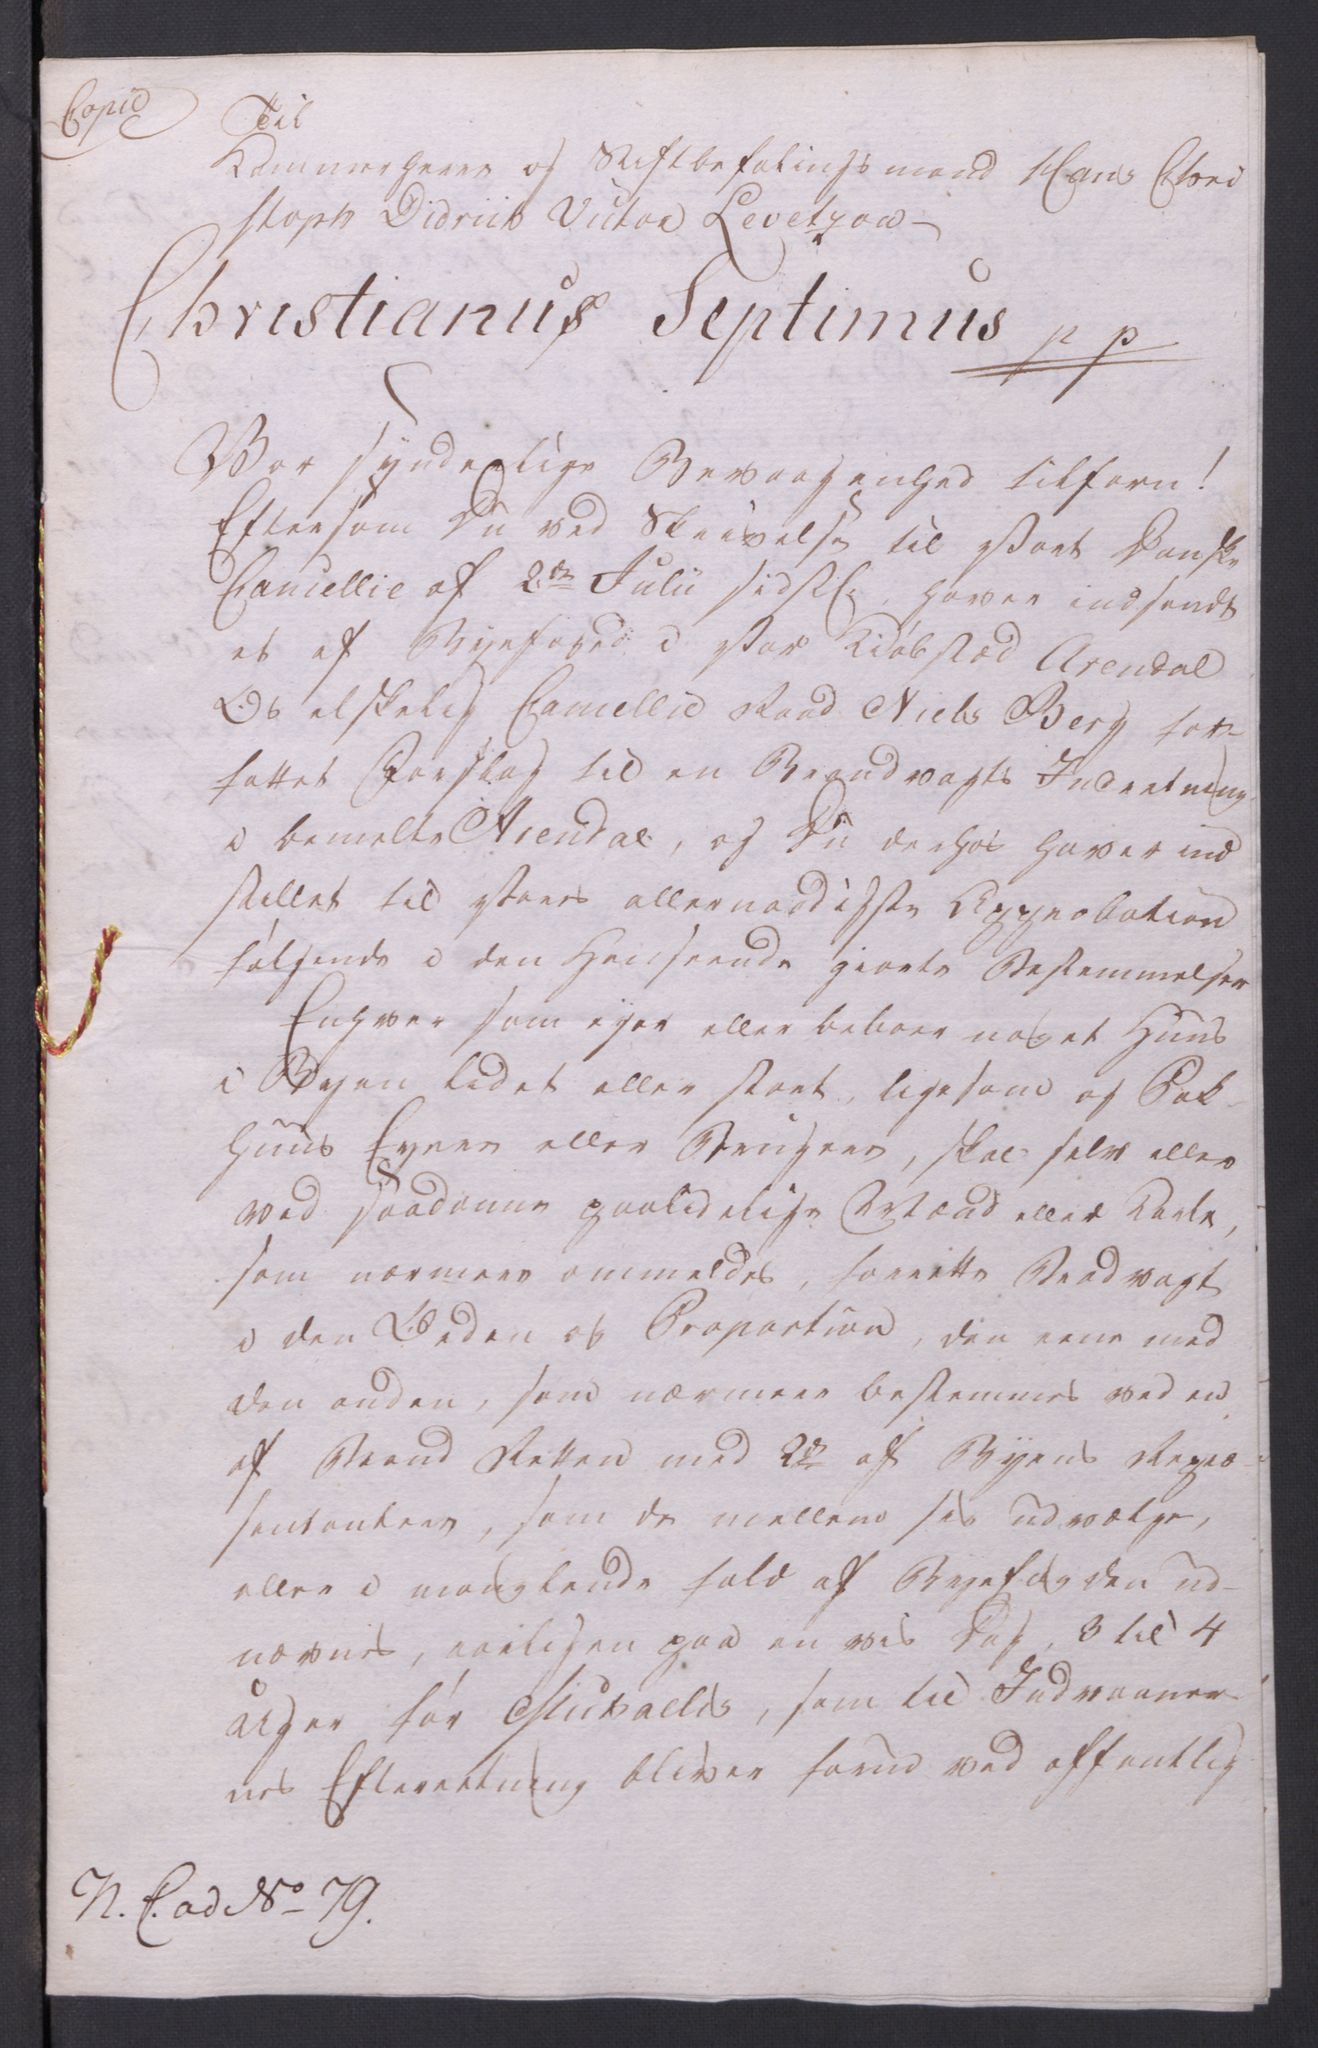 Copie
Til
Kammerherre og Stiftbefalingsmand Hans Chri
stoph Didrich Victor Levetzow
Christianus Septimus p p
Vor synderlige Bevaagenhed tilforn!
Eftersom Du ved Skrivelse til Vort Danske
Cancellie af 2den Julii sidstl. haver indsendt
et af Byefoged i Vor Kiøbstæd Arendal
Os elskelig Cancellie Raad Niels Berg for-
fattet Forslag til en Brandvagts Indretning
i bemelte Arendal, og Du derhos haver ind
stillet til Vores allernaadigste Approbation
følgende i den Henseende giorte Bestemmelser
Enhver som eyer eller beboer noget Huus
i Byen lidet eller stort, ligesom og Pak-
huus Eyere eller Brugere, skal selv eller
ved saadanne paalidelige Mænd eller Karle,
som nærmere ommeldes, forrette Brandvagt
i den Orden og Proportion, den eene med
den anden, som nærmere bestemmes ved en
af Brand Retten med 2de af Byens Repræ-
sentantere, som de mellem sig udvælge,
eller i manglende fald af Byefogden ud-
nævnes, aarligen paa en vis Dag, 3 til 4
Uger før Michaelis, som til Indvaaner-
nes Efterretning bliver forud ved offentlig
N. C. ad No 79.